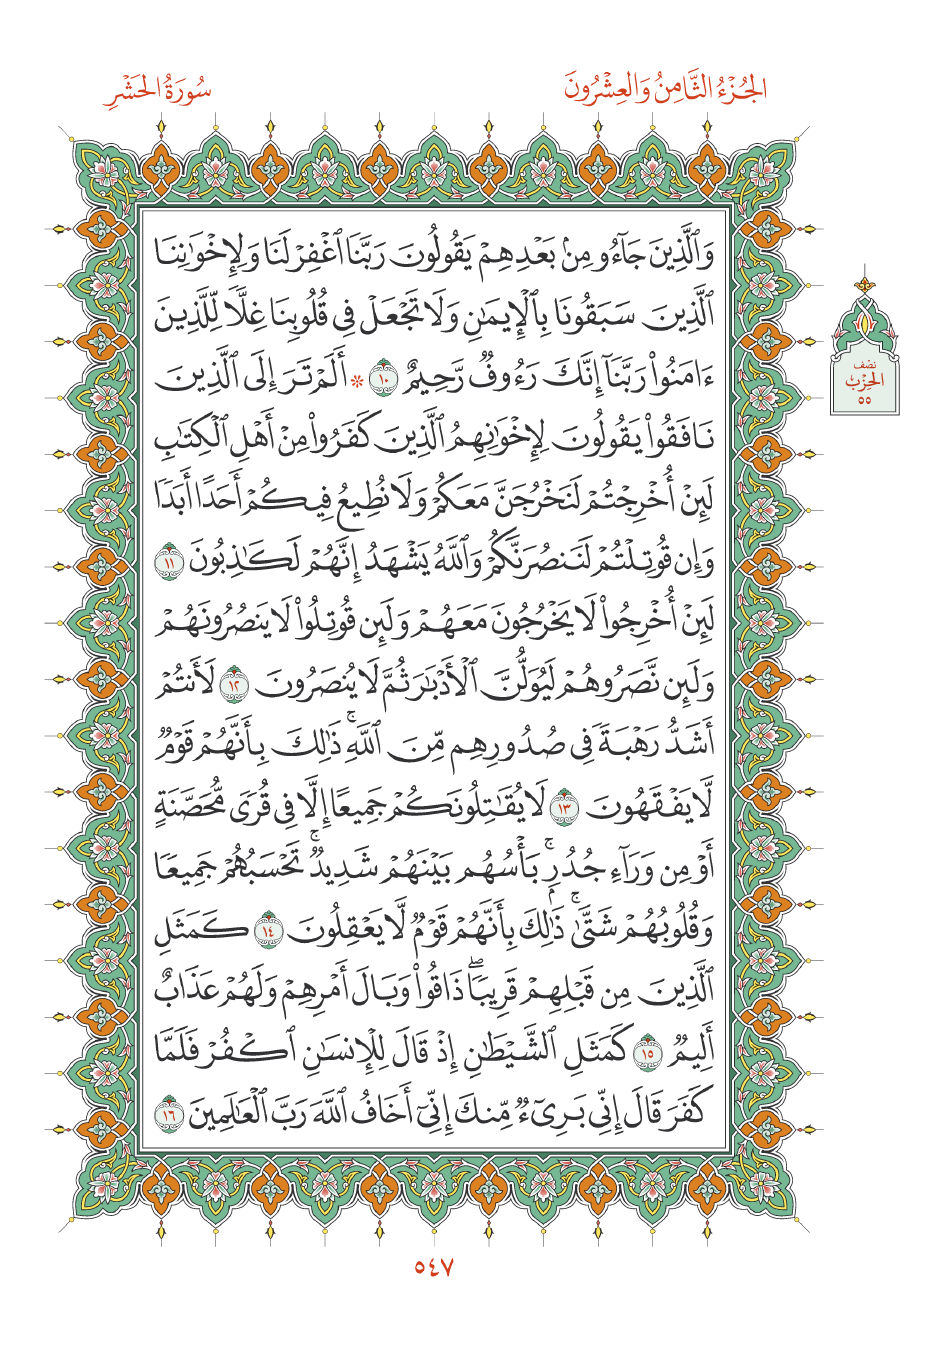 الجُزْءُ الثَّامِنُ وَالعِشْرُونَ
سُورَةُ الحَشْرِ
وَٱلَّذِينَ جَآءُو مِنۢ بَعْدِهِمْ يَقُولُونَ رَبَّنَا ٱغْفِرْ لَنَا وَلِإِخْوَٰنِنَا
ٱلَّذِينَ سَبَقُونَا بِٱلْإِيمَٰنِ وَلَا تَجْعَلْ فِى قُلُوبِنَا غِلًّا لِّلَّذِينَ
ءَامَنُوا۟ رَبَّنَآ إِنَّكَ رَءُوفٌ رَّحِيمٌ ١٠ ۞ أَلَمْ تَرَ إِلَى ٱلَّذِينَ
نَافَقُوا۟ يَقُولُونَ لِإِخْوَٰنِهِمُ ٱلَّذِينَ كَفَرُوا۟ مِنْ أَهْلِ ٱلْكِتَٰبِ
لَئِنْ أُخْرِجْتُمْ لَنَخْرُجَنَّ مَعَكُمْ وَلَا نُطِيعُ فِيكُمْ أَحَدًا أَبَدًا
وَإِن قُوتِلْتُمْ لَنَنصُرَنَّكُمْ وَٱللَّهُ يَشْهَدُ إِنَّهُمْ لَكَٰذِبُونَ ١١
لَئِنْ أُخْرِجُوا۟ لَا يَخْرُجُونَ مَعَهُمْ وَلَئِن قُوتِلُوا۟ لَا يَنصُرُونَهُمْ
وَلَئِن نَّصَرُوهُمْ لَيُوَلُّنَّ ٱلْأَدْبَٰرَ ثُمَّ لَا يُنصَرُونَ ١٢ لَأَنتُمْ
أَشَدُّ رَهْبَةً فِى صُدُورِهِم مِّنَ ٱللَّهِ ۚ ذَٰلِكَ بِأَنَّهُمْ قَوْمٌ
لَّا يَفْقَهُونَ ١٣ لَا يُقَٰتِلُونَكُمْ جَمِيعًا إِلَّا فِى قُرًى مُّحَصَّنَةٍ
أَوْ مِن وَرَآءِ جُدُرٍۭ ۚ بَأْسُهُم بَيْنَهُمْ شَدِيدٌ ۚ تَحْسَبُهُمْ جَمِيعًا
وَقُلُوبُهُمْ شَتَّىٰ ۚ ذَٰلِكَ بِأَنَّهُمْ قَوْمٌ لَّا يَعْقِلُونَ ١٤ كَمَثَلِ
ٱلَّذِينَ مِن قَبْلِهِمْ قَرِيبًا ۖ ذَاقُوا۟ وَبَالَ أَمْرِهِمْ وَلَهُمْ عَذَابٌ
أَلِيمٌ ١٥ كَمَثَلِ ٱلشَّيْطَٰنِ إِذْ قَالَ لِلْإِنسَٰنِ ٱكْفُرْ فَلَمَّا
كَفَرَ قَالَ إِنِّى بَرِىٓءٌ مِّنكَ إِنِّىٓ أَخَافُ ٱللَّهَ رَبَّ ٱلْعَٰلَمِينَ ١٦
نصف
الحزب
٥٥
٥٤٧